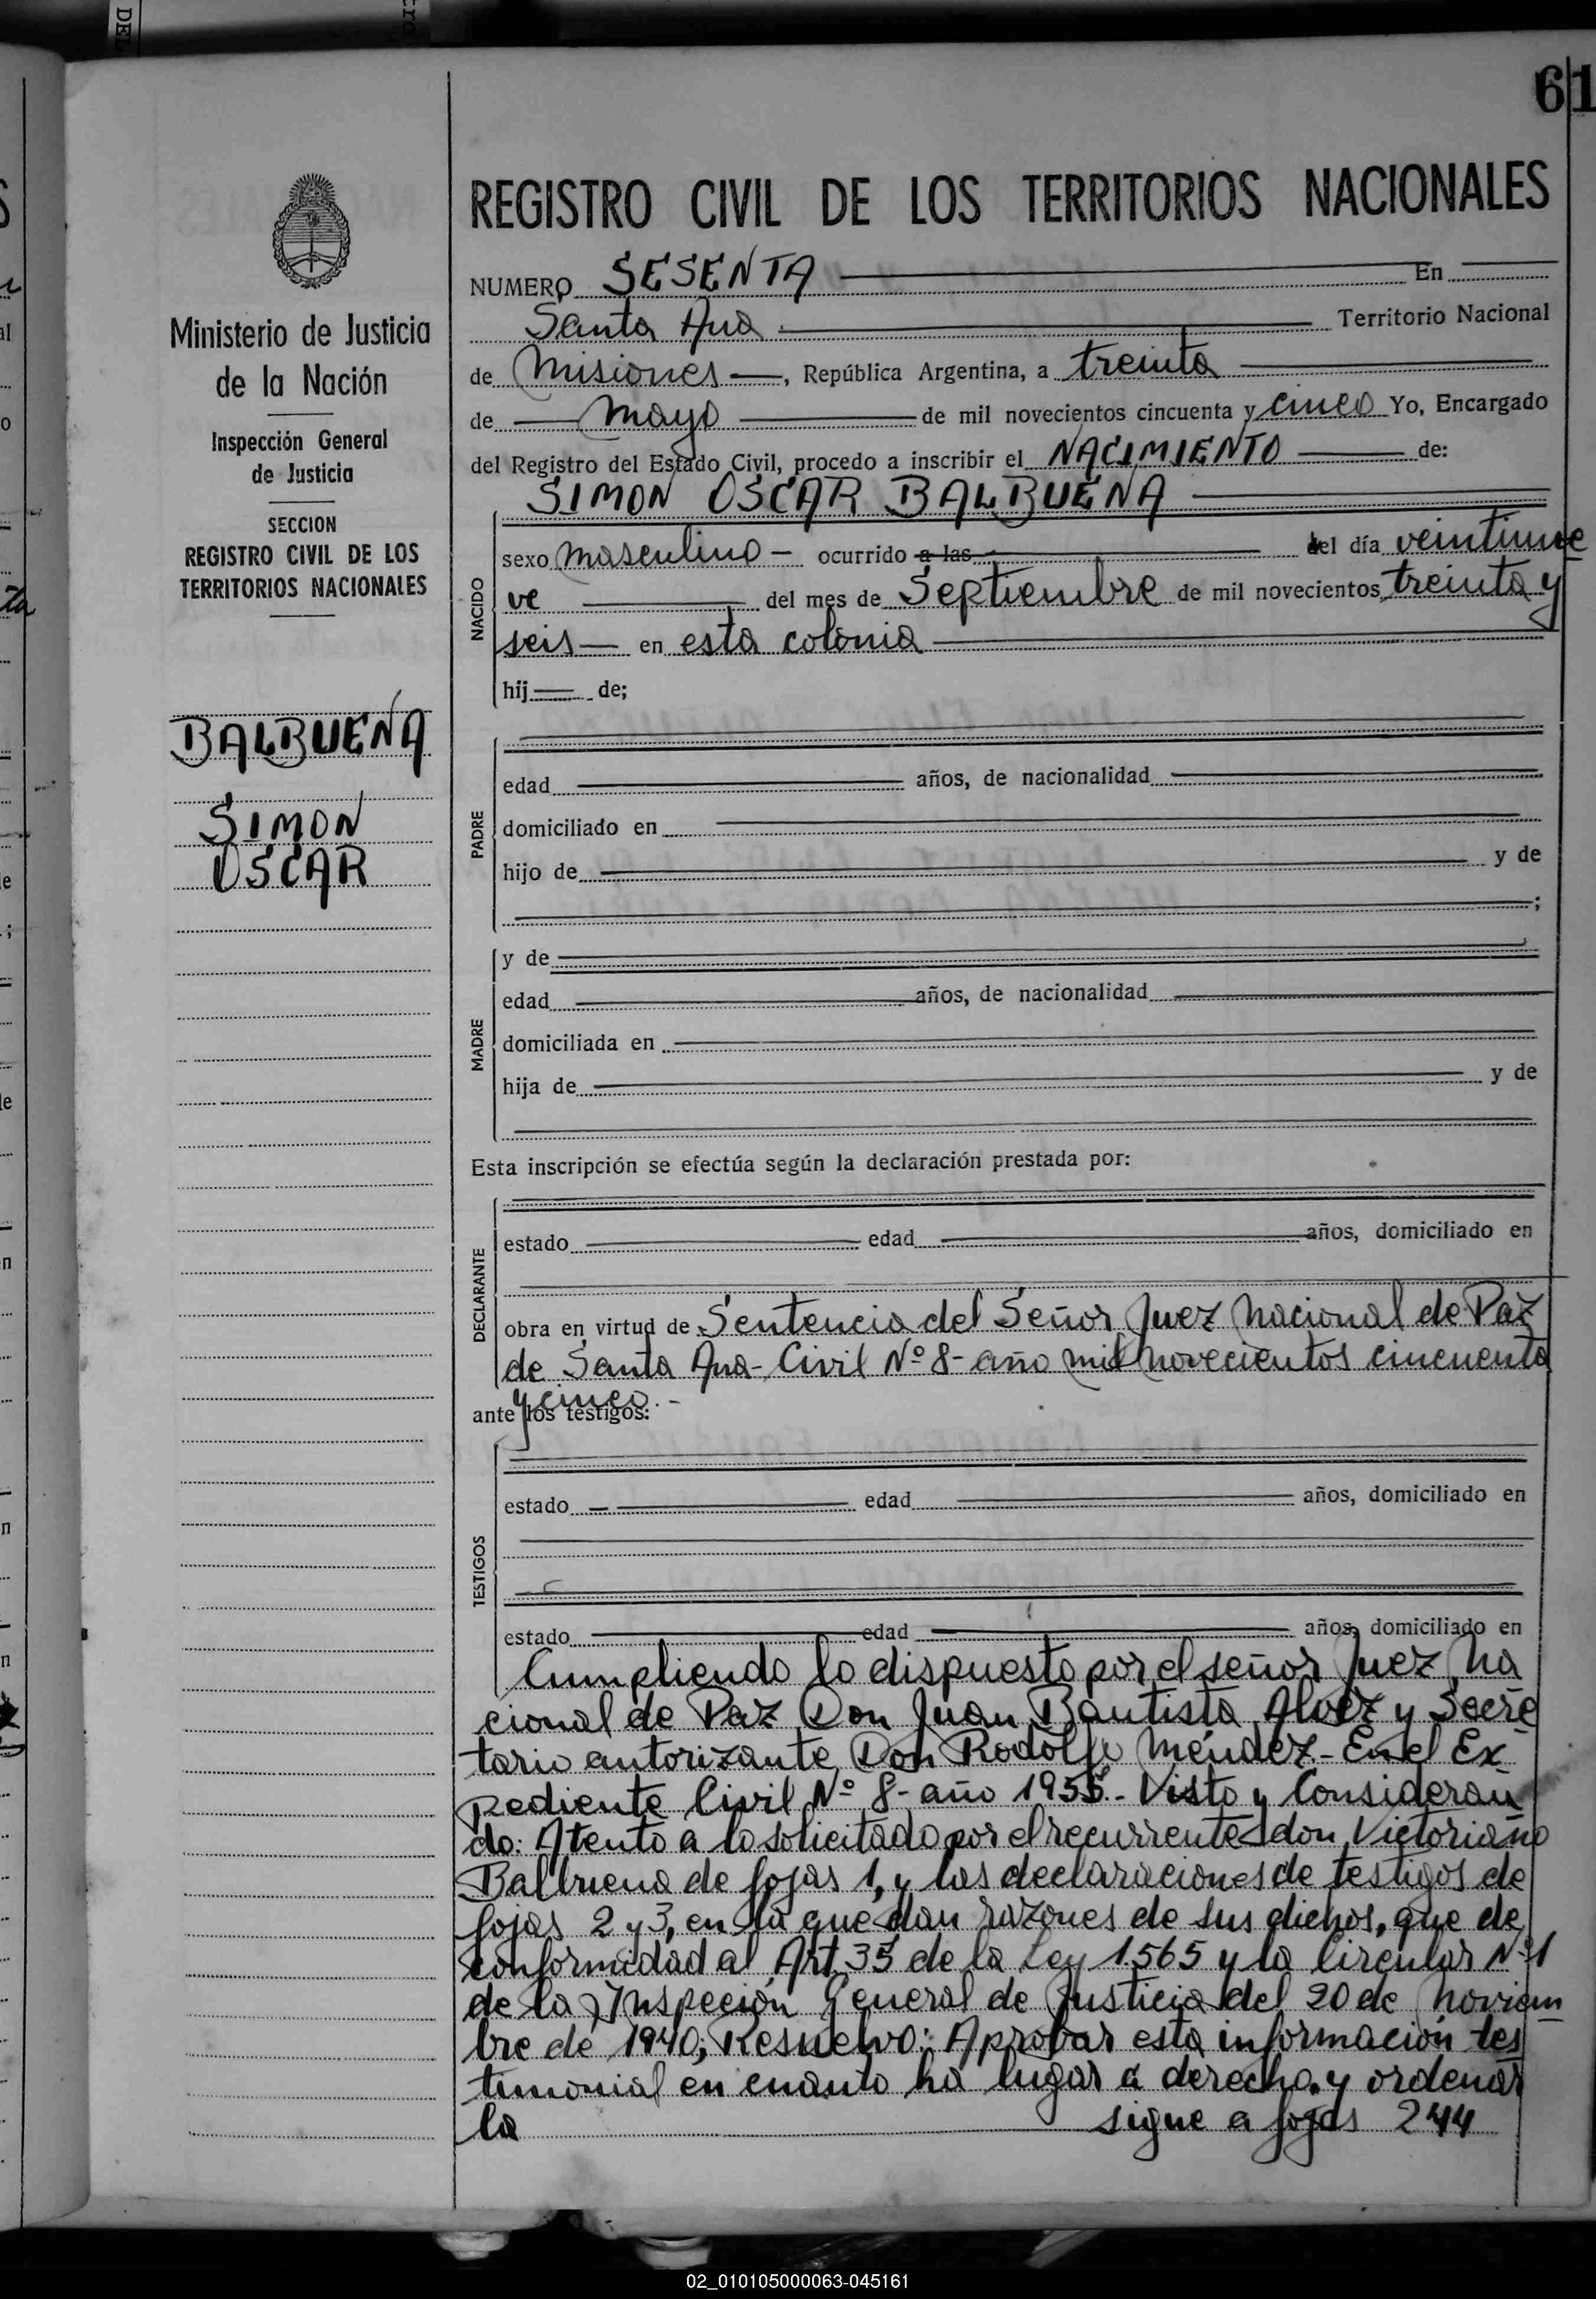 61
REGISTRO CIVIL DE LOS TERRITORIOS NACIONALES
NUMERO SESENTA En
Santa Ana Territorio Nacional
de Misiones, República Argentina, a treinta
de mayo de mil novecientos cincuenta y cinco Yo, Encargado
del Registro del Estado Civil, procedo a inscribir el NACIMIENTO de:
SIMON OSCAR BALBUENA
NACIDO
sexo masculino - ocurrido a las del día veintinue
ve del mes de Septiembre de mil novecientos treinta y
seis en esta colonia
hij de;
PADRE
edad años, de nacionalidad
domiciliado en
hijo de y de
;
MADRE
y de
edad años, de nacionalidad
domiciliada en
hija de y de
Esta inscripción se efectúa según la declaración prestada por:
DECLARANTE
estado edad años, domiciliado en
obra en virtud de Sentencia del Señor Juez Nacional de Paz
de Santa Ana - Civil Nº 8 - año mil novecientos cincuenta
y cinco.-
ante los testigos:
TESTIGOS
estado edad años, domiciliado en
estado edad años, domiciliado en
Cumpliendo lo dispuesto por el señor Juez Na
cional de Paz Don Juan Bautista Alvez y Secre
tario autorizante Don Rodolfo Méndez.- En el Ex
pediente Civil Nº 8- año 1955.- Visto y Consideran
do: Atento a lo solicitado por el recurrente don Victoriano
Balbuena de fojas 1, y las declaraciones de testigos de
fojas 2 y 3, en la que dan razones de sus dichos, que de
conformidad al Art. 35 de la Ley 1565 y la Circular Nº 1
de la Inspeción General de Justicia del 20 de noviem
bre de 1940; Resuelvo: Aprobar esta información tes
timonial en cuanto ha lugar a derecho, y ordenar
la sigue a fojas 244
Ministerio de Justicia
de la Nación
Inspección General
de Justicia
SECCION
REGISTRO CIVIL DE LOS
TERRITORIOS NACIONALES
BALBUENA
SIMON
OSCAR
02_010105000063-045161